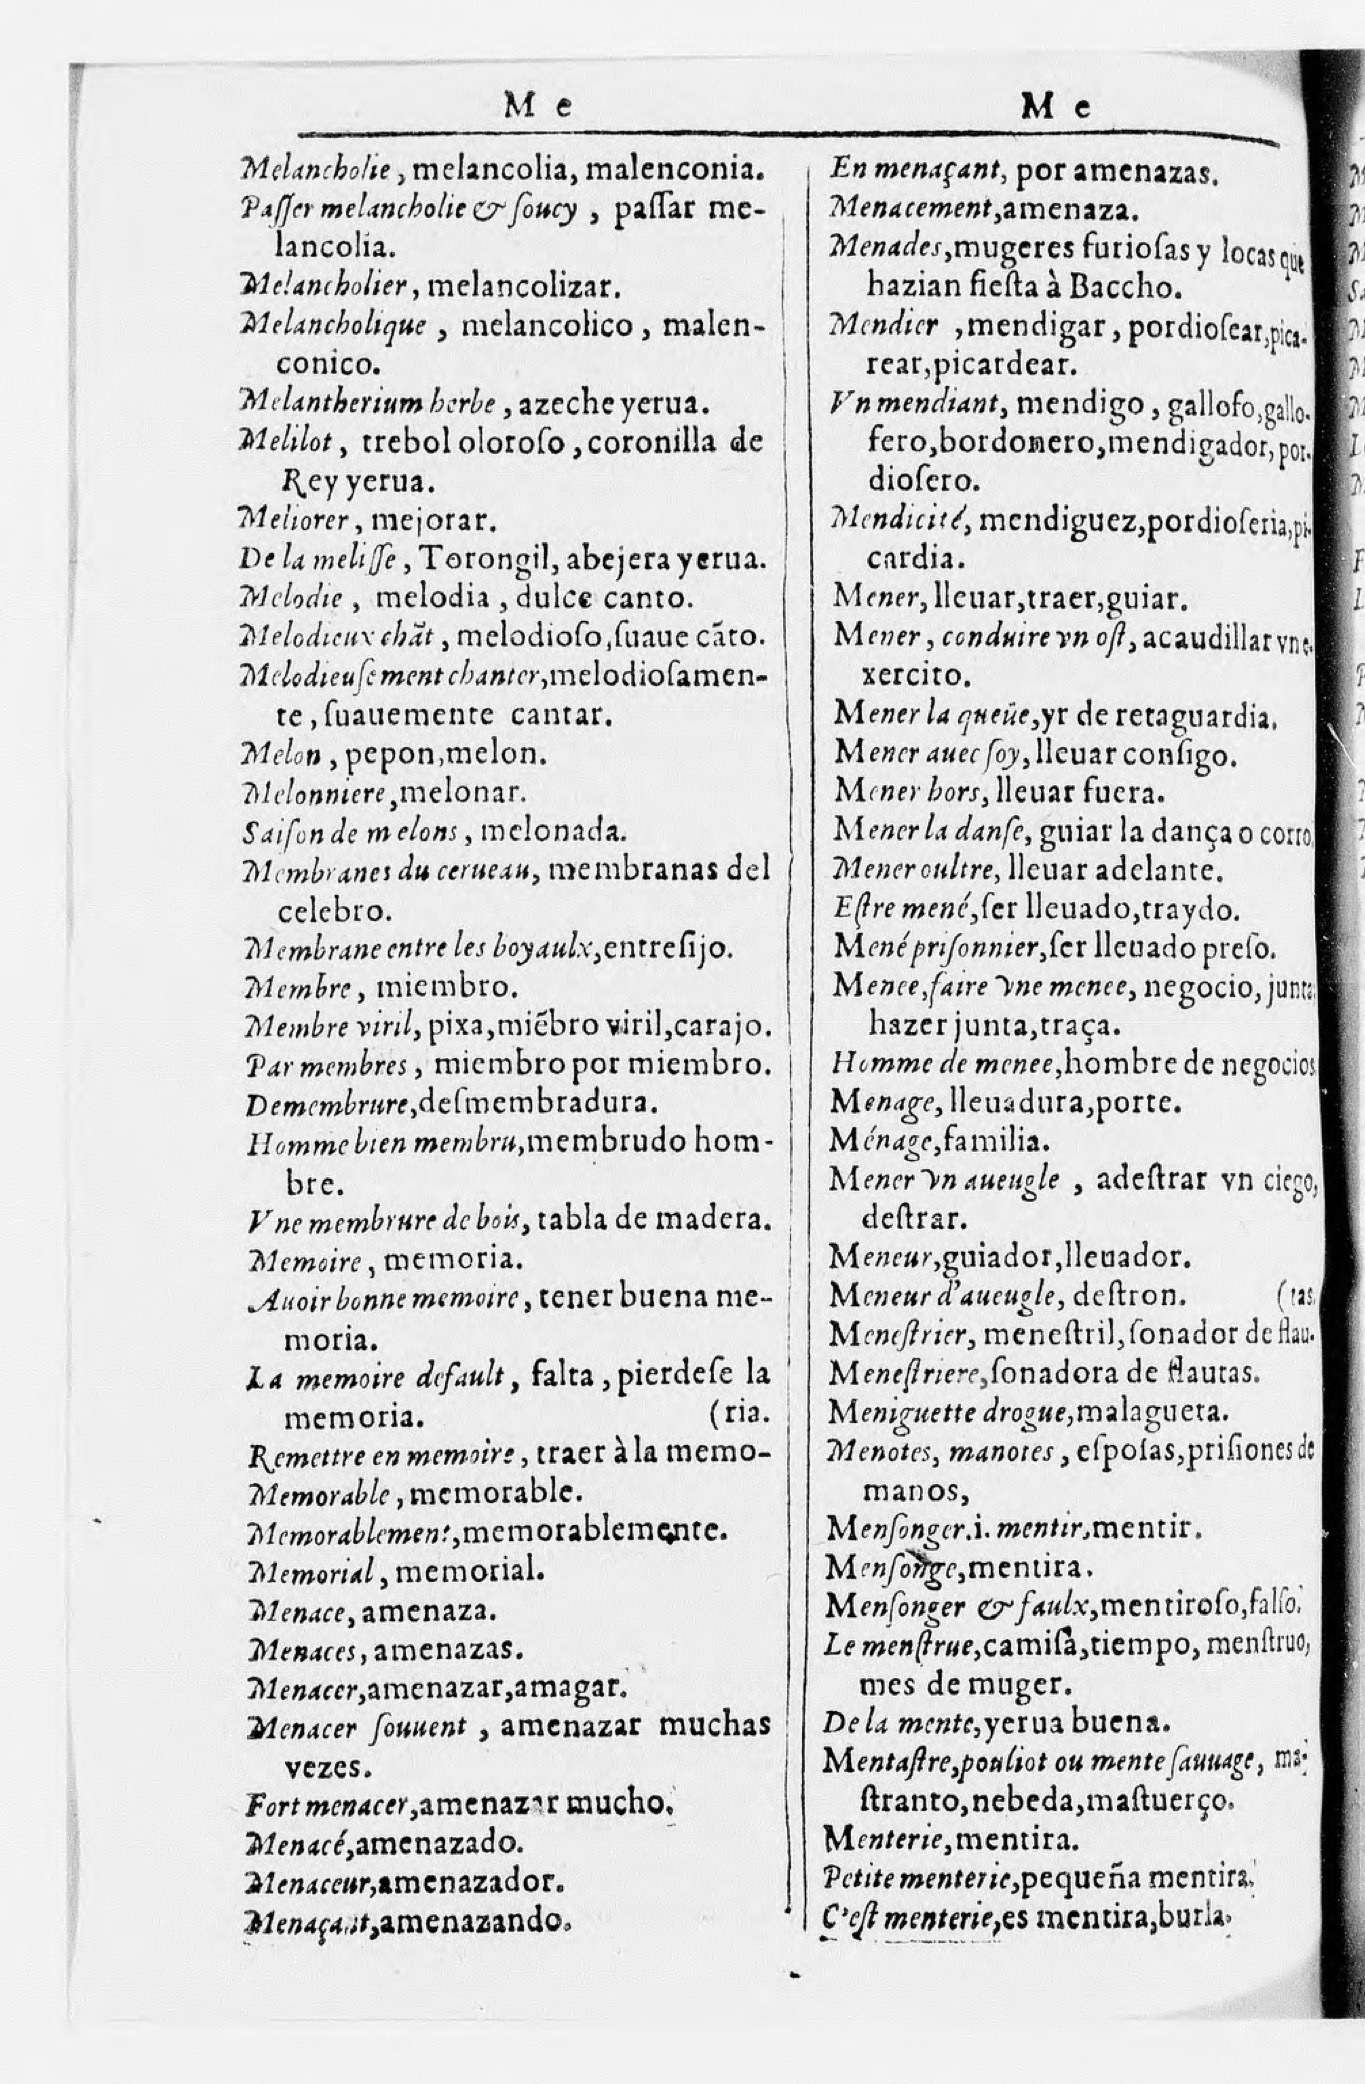 M e
Melancholie, melancolia, malenconia.
Paſſer melancholie & ſoucy, paſſar me-
lancolia.
Melancholier, melancolizar.
Melancholique, melancolico, malen-
conico.
Melantherium herbe, azeche yerua.
Melilot, trebol oloroſo, coronilla de
Rey yerua.
Meliorer, mejorar.
De la meliſſe, Torongil, abejera yerua.
Melodie, melodia, dulce canto.
Melodieux chãt, melodioſo, ſuaue cãto.
Melodieuſement chanter, melodioſamen-
te, ſuauemente cantar.
Melon, pepon, melon.
Melonniere, melonar.
Saiſon de melons, melonada.
Membranes du cerueau, membranas del
celebro.
Membrane entre les boyaulx, entreſijo.
Membre, miembro.
Membre viril, pixa, miẽbro viril, carajo.
Par membres, miembro por miembro.
Demembrure, deſmembradura.
Homme bien membru, membrudo hom-
bre.
Vne membrure de bois, tabla de madera.
Memoire, memoria.
Auoir bonne memoire, tener buena me-
moria.
La memoire default, falta, pierdeſe la
memoria. (ria.
Remettre en memoire, traer à la memo-
Memorable, memorable.
Memorablement, memorablemente.
Memorial, memorial.
Menace, amenaza.
Menaces, amenazas.
Menacer, amenazar, amagar.
Menacer ſouuent, amenazar muchas
vezes.
Fort menacer, amenazar mucho.
Menacé, amenazado.
Menaceur, amenazador.
Menaçant, amenazando.
M e
En menaçant, por amenazas.
Menacement, amenaza.
Menades, mugeres furioſas y locas que
hazian fieſta à Baccho.
Mendier, mendigar, pordioſear, pica-
rear, picardear.
Vn mendiant, mendigo, gallofo, gallo-
fero, bordonero, mendigador, por-
dioſero.
Mendicité, mendiguez, pordioſeria, pi-
cardia.
Mener, lleuar, traer, guiar.
Mener, conduire vn oſt, acaudillar vn e-
xercito.
Mener la queüe, yr de retaguardia.
Mener auec ſoy, lleuar conſigo.
Mener hors, lleuar fuera.
Mener la danſe, guiar la dança o corro.
Mener oultre, lleuar adelante.
Eſtre mené, ſer lleuado, traydo.
Mené priſonnier, ſer lleuado preſo.
Menee, faire vne menee, negocio, junta
hazer junta, traça.
Homme de menee, hombre de negocios
Menage, lleuadura, porte.
Ménage, familia.
Mener vn aueugle, adeſtrar vn ciego,
deſtrar.
Meneur, guiador, lleuador.
Meneur d'aueugle, deſtron. (tas.
Meneſtrier, meneſtril, ſonador de flau-
Meneſtriere, ſonadora de flautas.
Meniguette drogue, malagueta.
Menotes, manotes, eſpoſas, priſiones de
manos,
Menſonger.i. mentir, mentir.
Menſonge, mentira.
Menſonger & faulx, mentiroſo, falſo.
Le menſtrue, camiſa, tiempo, menſtruo,
mes de muger.
De la mente, yerua buena.
Mentaſtre, pouliot ou mente ſauuage, ma-
ſtranto, nebeda, maſtuerço.
Menterie, mentira.
Petite menterie, pequeña mentira.
C'eſt menterie, es mentira, burla.